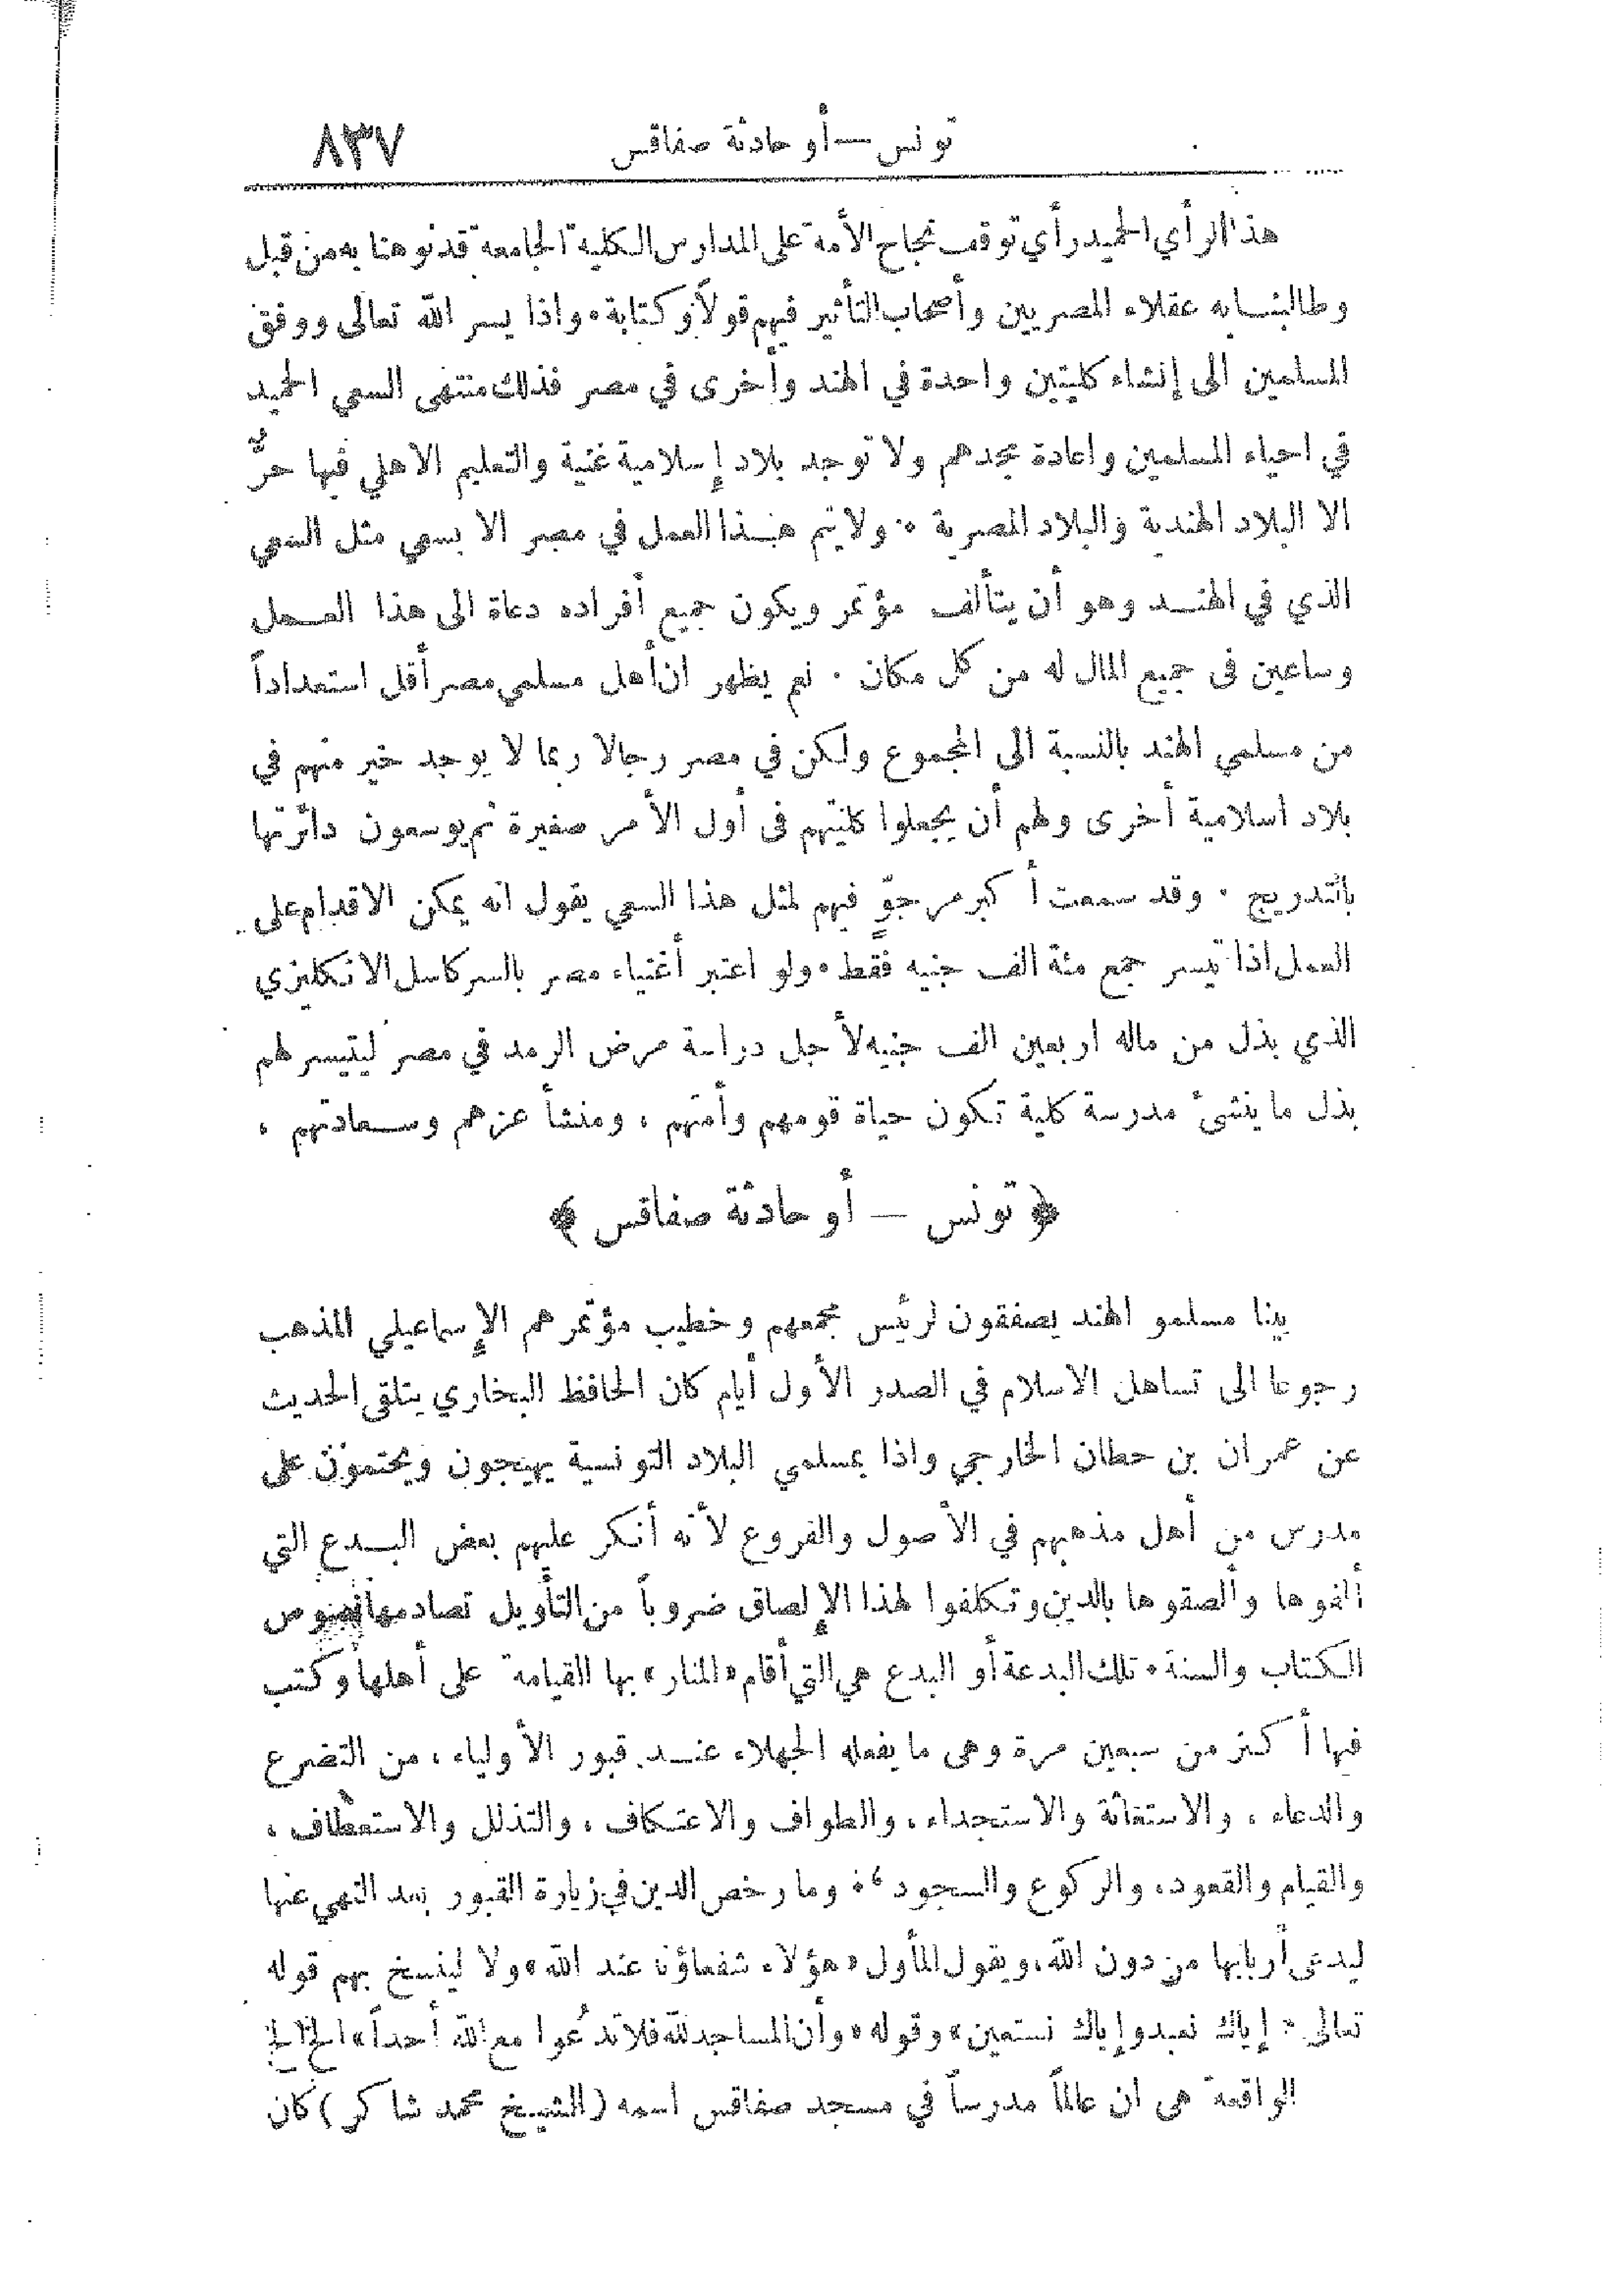 تونس — أو حادثة صفاقس ٨٣٧
هذا الرأي الحميد رأي توقف نجاح الأمة على المدارس الكلية الجامعة قد نوهنا به من قبل
وطالبنا به عقلاء المصريين وأصحاب التأثير فيهم قولاً وكتابة ٠ واذا يسر الله تعالى ووفق
المسلمين الى إنشاء كليتين واحدة في الهند وأخرى في مصر فذلك منتهى السعي الحميد
في احياء المسلمين واعادة مجدهم ولا توجد بلاد إسلامية غنية والتعليم الاهلي فيها حرٌّ
الا البلاد الهندية والبلاد المصرية ٠ ولا يتم هذا العمل في مصر الا بسعي مثل السعي
الذي في الهند وهو أن يتألف مؤتمر ويكون جميع أفراده دعاة الى هذا العمل
وساعين فى جميع المال له من كل مكان ٠ نعم يظهر ان أهل مسلمي مصر أقل استعداداً
من مسلمي الهند بالنسبة الى المجموع ولكن في مصر رجالا ربما لا يوجد خير منهم في
بلاد اسلامية أخرى ولهم أن يجعلوا كليتهم فى أول الأمر صغيرة ثم يوسعون دائرتها
بالتدريج ٠ وقد سمعت أكبر مرجوّ فيهم لمثل هذا السعي يقول انه يمكن الاقدام على
العمل اذا تيسر جمع مئة الف جنيه فقط ٠ ولو اعتبر أغنياء مصر بالسر كاسل الانكليزي
الذي بذل من ماله اربعين الف جنيه لأجل دراسة مرض الرمد في مصر ليتيسر لهم
بذل ما ينشئ مدرسة كلية تكون حياة قومهم وأمتهم ، ومنشأ عزهم وسعادتهم ،
﴿ تونس — أو حادثة صفاقس ﴾
بينا مسلمو الهند يصفقون لرئيس مجمعهم وخطيب مؤتمرهم الإسماعيلي المذهب
رجوعا الى تساهل الاسلام في الصدر الأول أيام كان الحافظ البخاري يتلقى الحديث
عن عمران بن حطان الخارجي واذا بمسلمي البلاد التونسية يهيجون ويحتمون على
مدرس من أهل مذهبهم في الأصول والفروع لأنه أنكر عليهم بعض البدع التي
ألفوها وألصقوها بالدين وتكلفوا لهذا الإلصاق ضروباً من التأويل تصادمها نصوص
الكتاب والسنة ٠ تلك البدعة أو البدع هي التي أقام «المنار» بها القيامة على أهلها وكتب
فيها أكثر من سبعين مرة وهى ما يفعله الجهلاء عند قبور الأولياء ، من التضرع
والدعاء ، والاستغاثة والاستجداء ، والطواف والاعتكاف ، والتذلل والاستعطاف ،
والقيام والقعود ، والركوع والسجود ، ٠ وما رخص الدين في زيارة القبور بعد النهي عنها
ليدعى أربابها من دون الله ، ويقول المأول « هؤلاء شفعاؤنا عند الله » ولا لينسخ بهم قوله
تعالى « إياك نعبد وإياك نستعين » وقوله « وأن المساجد لله فلا تدعوا مع الله أحداً » الخ الخ
الواقعة هى ان عالماً مدرساً في مسجد صفاقس اسمه (الشيخ محمد شاكر) كان